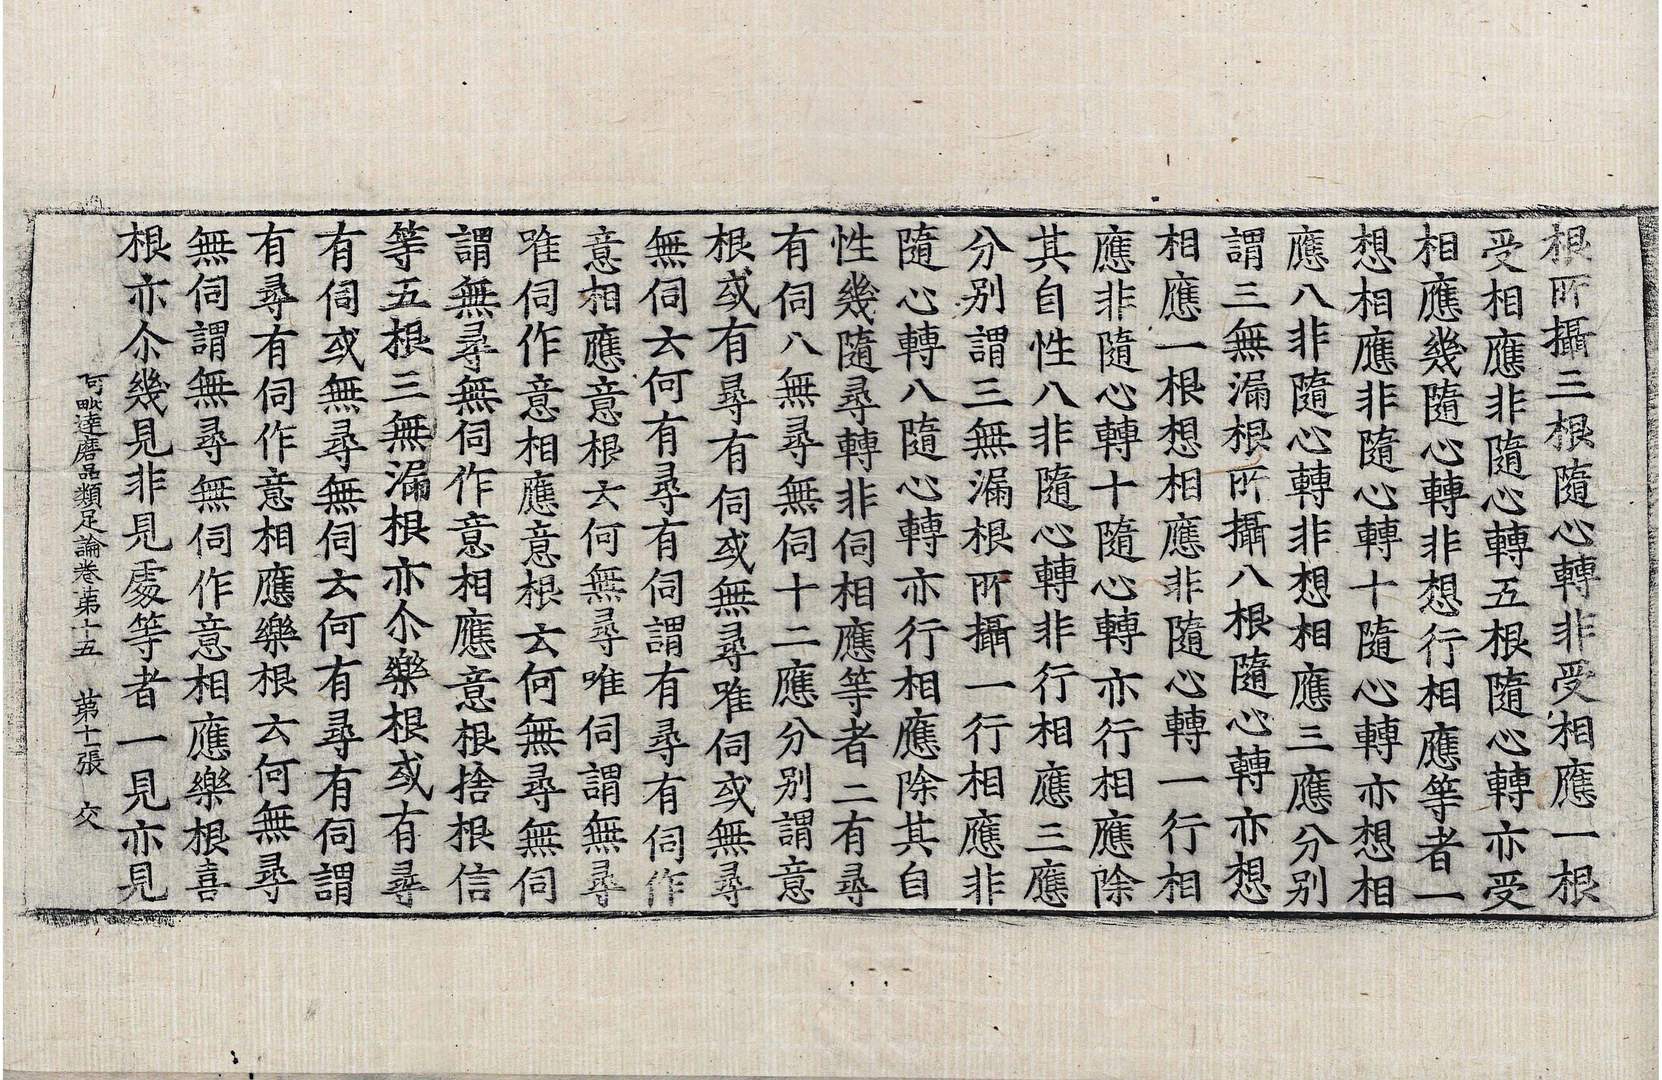 根所攝三根隨心轉非受相應一根
受相應非隨心轉五根隨心轉亦受
相應幾隨心轉非想行相應等者一
想相應非隨心轉十隨心轉亦想相
應八非隨心轉非想相應三應分別
謂三無漏根所攝八根隨心轉亦想
相應一根想相應非隨心轉一行相
應非隨心轉十隨心轉亦行相應除
其自性八非隨心轉非行相應三應
分別謂三無漏根所攝一行相應非
隨心轉八隨心轉亦行相應除其自
性幾隨尋轉非伺相應等者二有尋
有伺八無尋無伺十二應分別謂意
根或有尋有伺或無尋唯伺或無尋
無伺云何有尋有伺謂有尋有伺作
意相應意根云何無尋唯伺謂無尋
唯伺作意相應意根云何無尋無伺
謂無尋無伺作意相應意根捨根信
等五根三無漏根亦尒樂根或有尋
有伺或無尋無伺云何有尋有伺謂
有尋有伺作意相應樂根云何無尋
無伺謂無尋無伺作意相應樂根喜
根亦尒幾見非見處等者一見亦見
阿毗達磨品類足論卷第十五 第十張 交